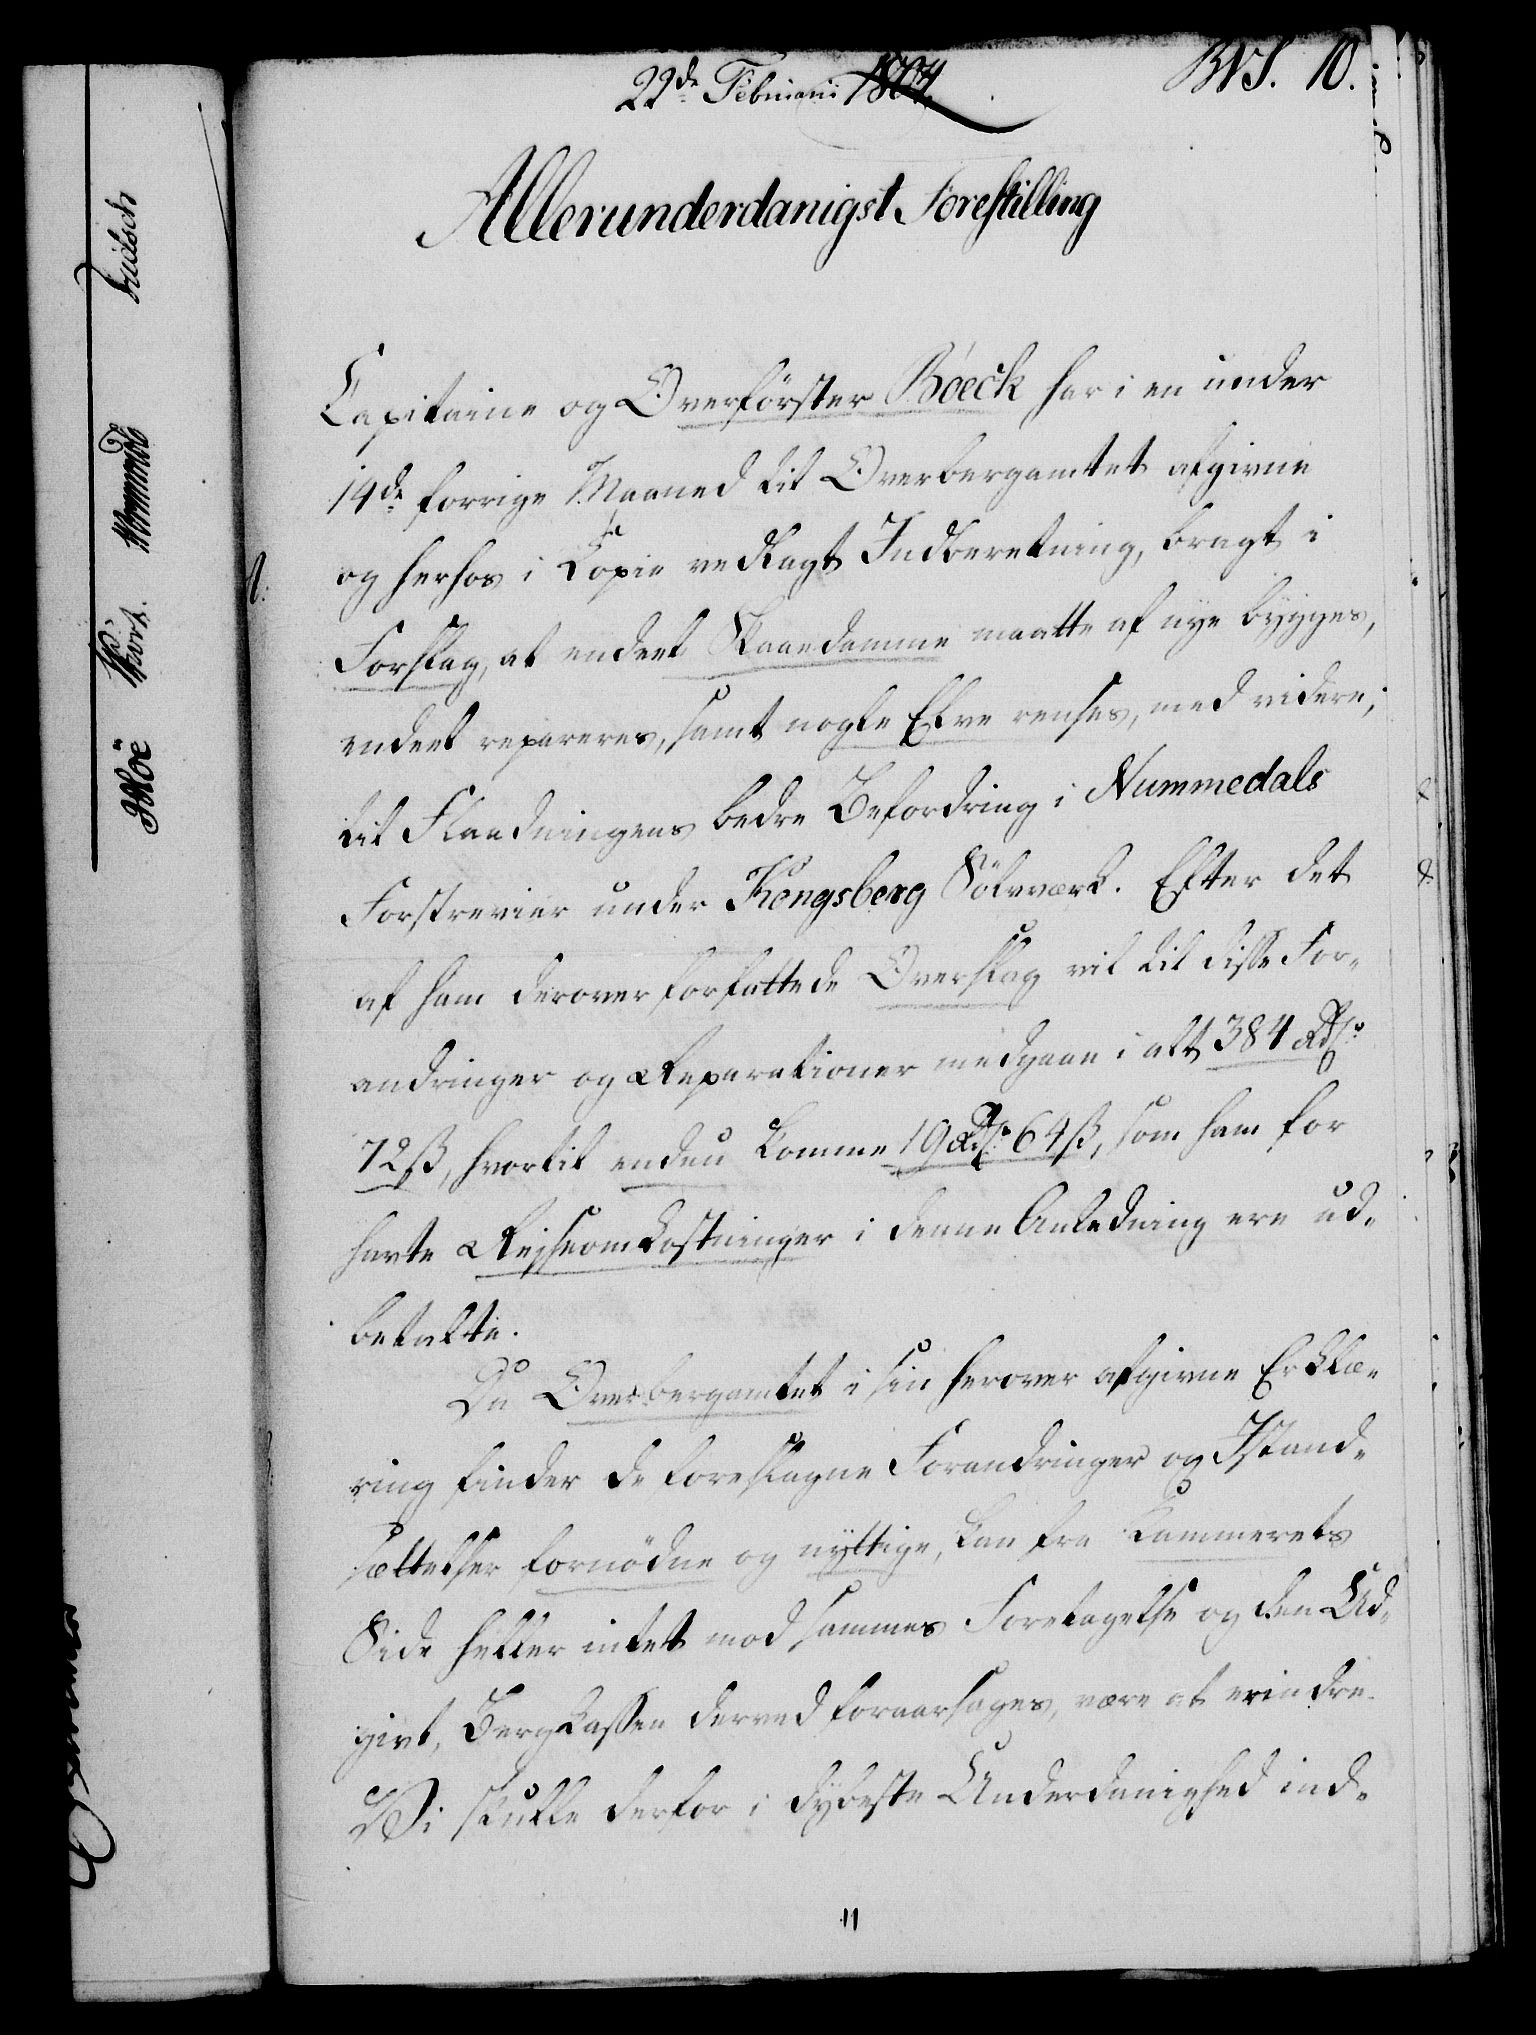 22de Februarii 1804
BVS. 10.
Allerunderdanigst Forestilling
Capitaine og Overförster Böeck har i en under
14de forrige Maaned til Overbergamtet afgivne
og herhos i Copie vedlagt Indberetning, bragt i
Forslag, at endeel Skaaedamme maatte af nye bygges,
endeel repareres, samt nogle Elve renses, med videre,
til Flaadningens bedre Befordring i Nummedals
Forstrevier under Kongsberg Sölvværk. Efter det
af ham derover forfattede Overslag vil til disse For-
andringer og Reparationer medgaae i alt 384 Rdlr
72 ß, hvortil endnu komme 19 Rdlr 64 ß, som ham for
havte Rejseomkostninger i denne Anledning ere ud-
betalte.
Da Overbergamtet i sin herover afgivne Erklæ-
ring finder de foreslagne Forandringer og Istand-
sættelser fornödne og nyttige, kan fra Kammerets
Side heller intet mod sammes Foretagelse og den Ud-
givt, Bergkassen derved foraarsages, være at erindre.
Vi skulle derfor i dybeste Underdanighed ind-
11